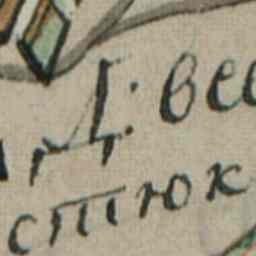 Д: вес
стюк